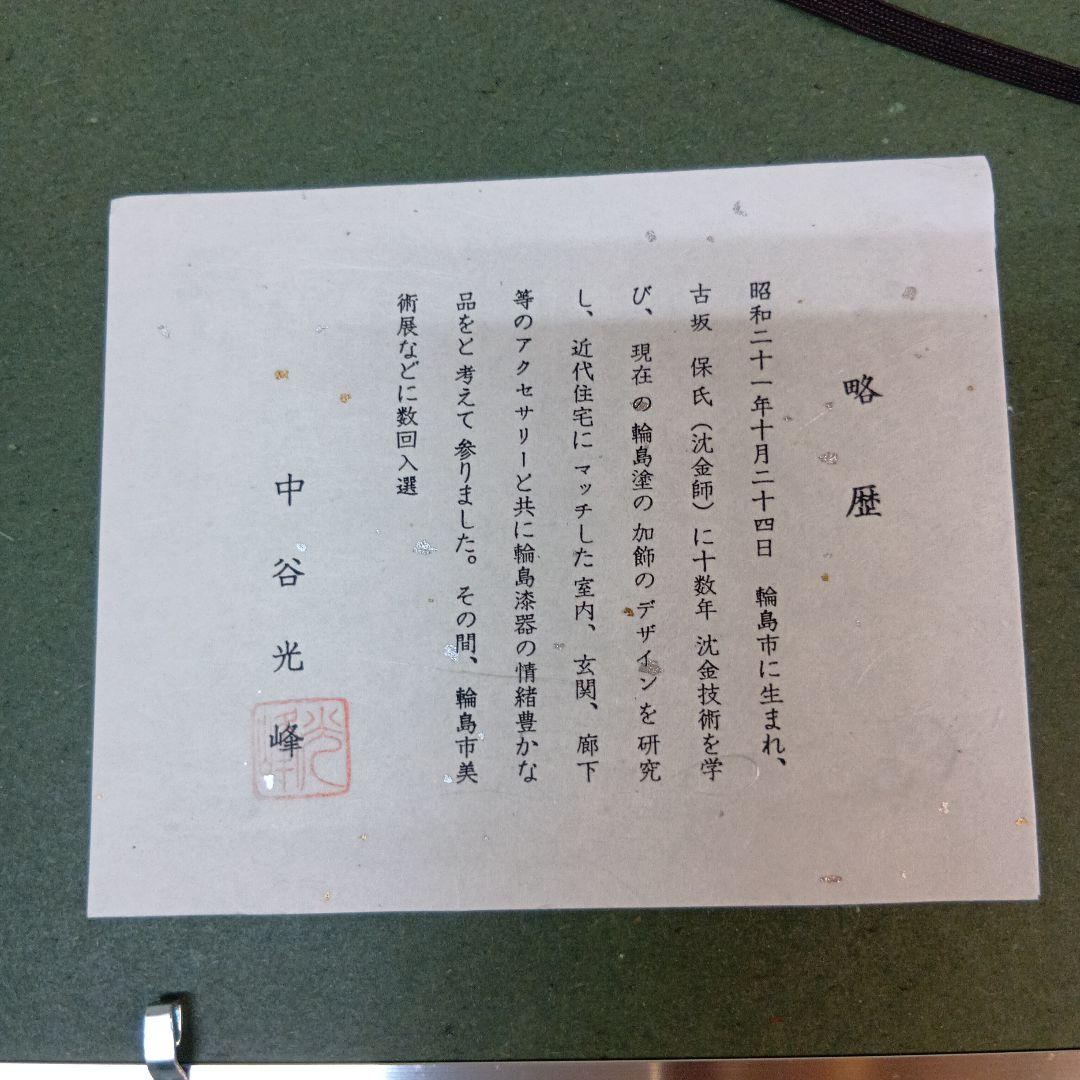 略歴
昭和二十一年十月二十四日 輪島市に生まれ、
古坂 保氏（沈金師）に十数年 沈金技術を学
び、現在の輪島塗の加飾のデザインを研究
し、近代住宅にマッチした室内、玄関、廊下
等のアクセサリーと共に輪島漆器の情緒豊かな
品をと考えて参りました。その間、輪島市美
術展などに数回入選
中谷光峰